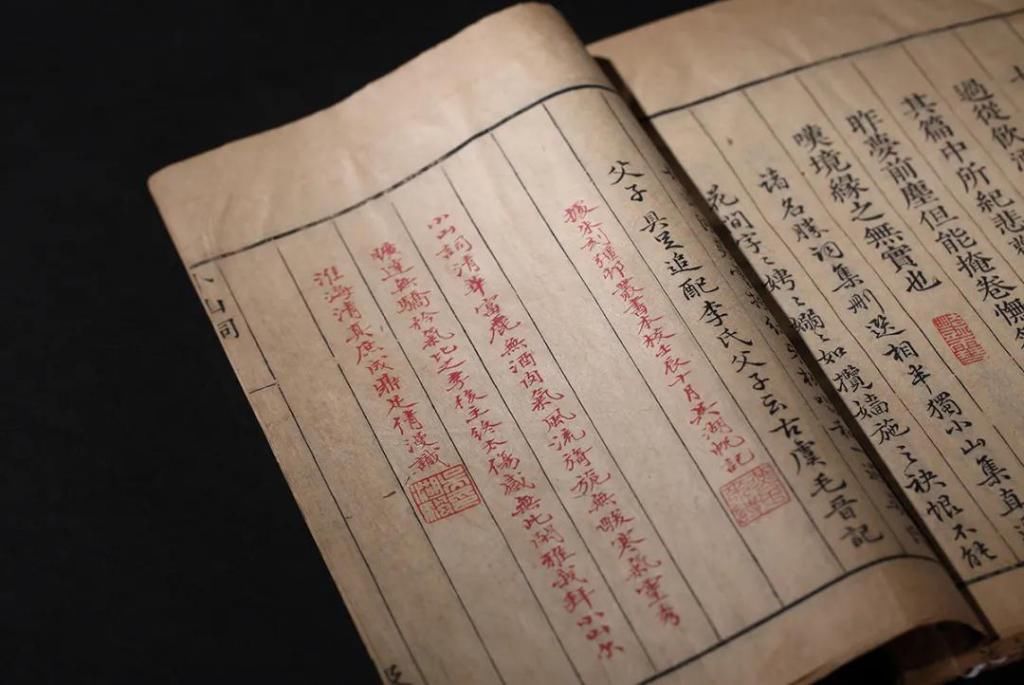 過從飲酒
其篇中所紀悲歡
昨夢前塵但能掩卷憮然
嘆境緣之無實也
諸名勝詞集刪選相半獨小山集直
花間字〻娉〻嫋〻如攬嬙施之袂恨不能
父子具足追配李氏父子云古虞毛晉記
據朱刻彊邨叢書本校壬辰十月吳湖帆記
小山詞清華富麗無酒肉氣風流旖旎無酸寒氣重秀
曠達無驕矜氣比之李後主終太傷感無此閑雅我拜小山尔
淮海清真庶成鼎足倩菴識
小山詞